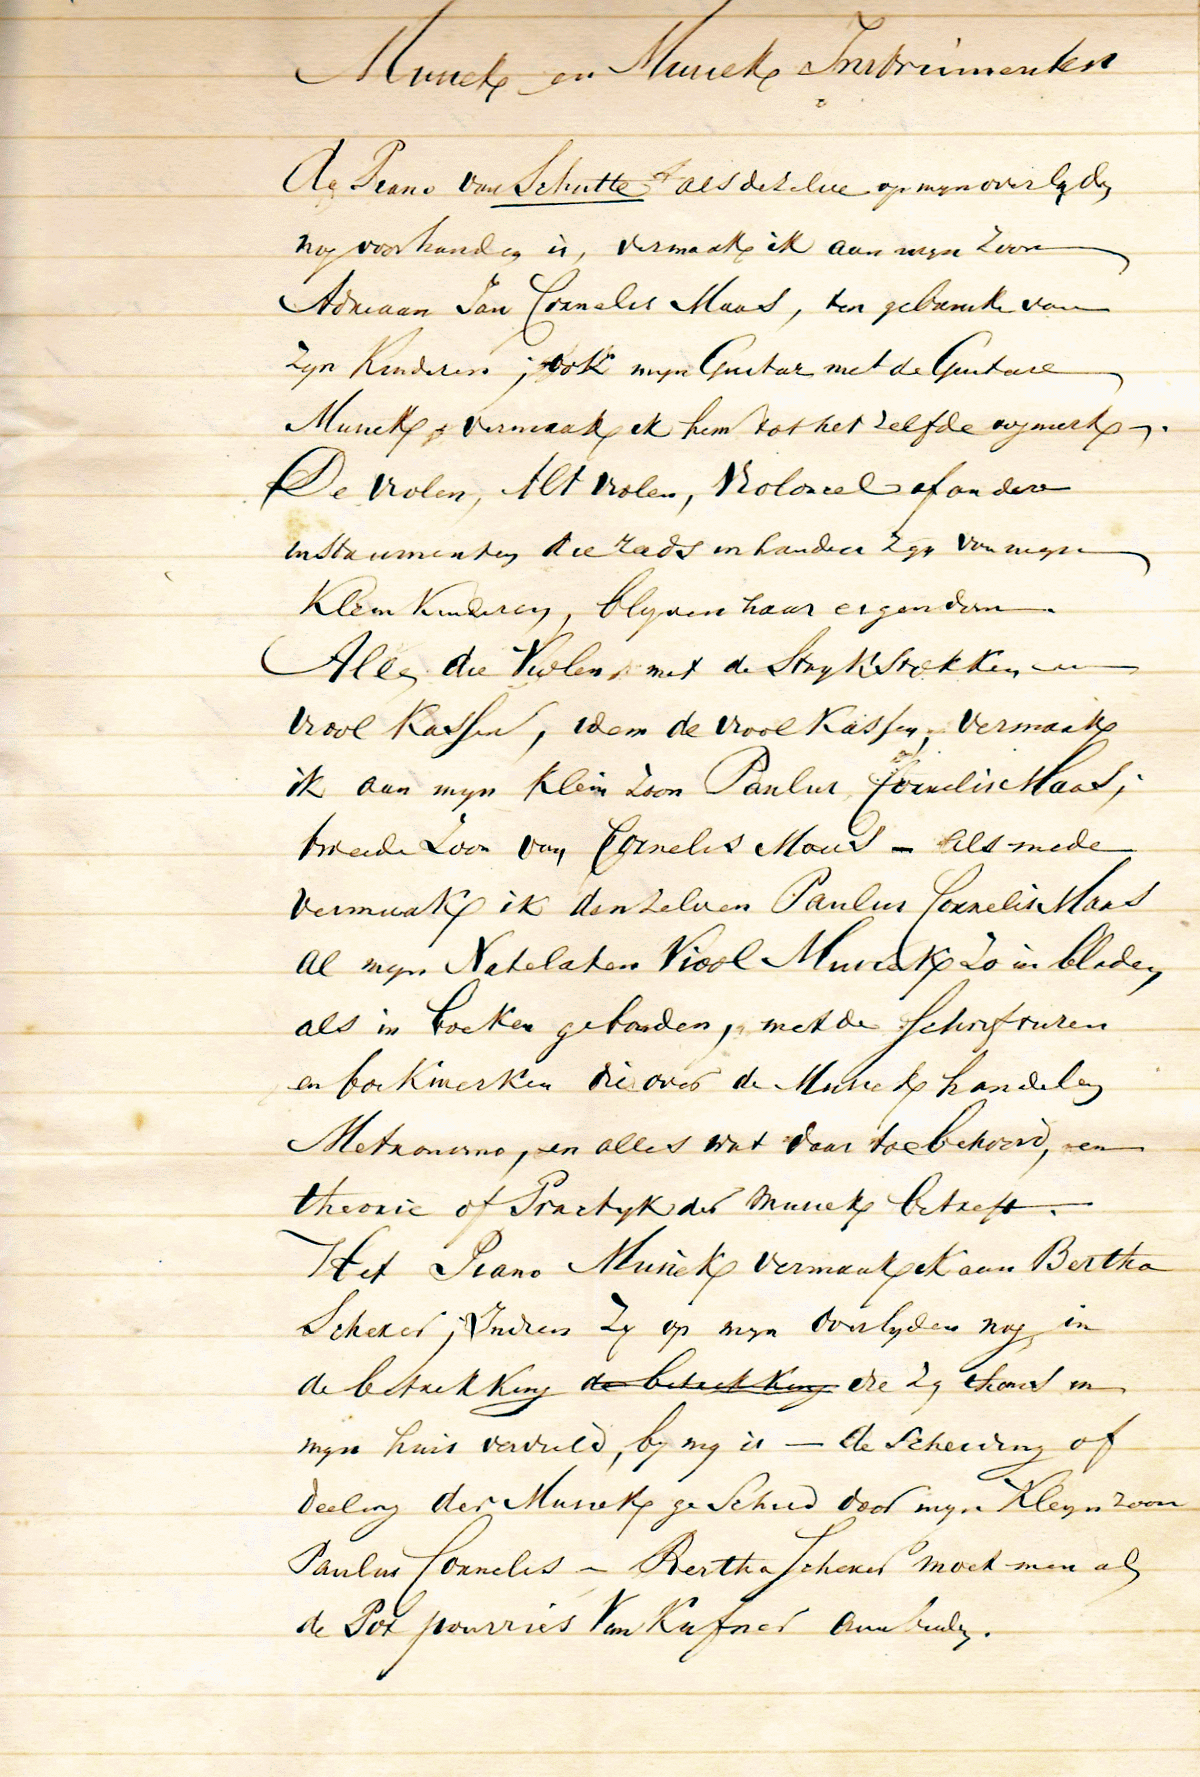 Musiek en Musiek Instrumenten
De Piano van Schutte als dezelve op myn overlyden
nog voorhanden is, vermaak ik aan myn Zoon
Adriaan Jan Cornelis Maas, ten gebruike van
zyn Kinderen; ook myn Guitar met de Guitare
Musiek, vermaak ik hem tot het zelfde oogmerk.
De violen, Alt violen, Violoncel of andere
instrumenten die reeds in handen zyn van myn
Klein Kinderen, blyven haar eigendom.
Alle die Violen, met de Strykstokken en
viool Kassen, idem de viool Kassen, vermaak
ik aan myn klein Zoon Paulus Cornelis Maas;
tweede Zoon van Cornelis Maas – als mede
vermaak ik denzelven Paulus Cornelis Maas
al myn Natelaten Viool Musiek zo in bladen,
als in boeken gebonden, met de Schrifturen
en boekwerken die over de Musiek handelen
Metronome, en alles wat daar toe behoord, en
theorie of Practyk der musiek betreft.
Het Piano Musiek vermaak ik aan Bertha
Scherer; Indien Zy op myn Overlyden nog in
de betrekking de betrekking die zy thans in
myn huis vervuld, by my is — de Scheiding of
deeling der Musiek geschied door myn Kleyn zoon
Paulus Cornelis – Bertha Scherer moet men al
de Pot pourries Van Kufner aanbieden.